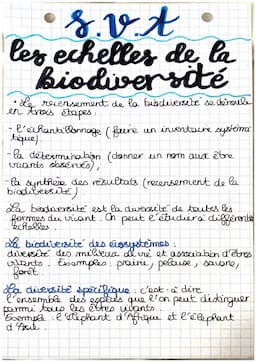 S.V.T
les echelles de la
biodiversité
• Le recensement de la biodiversité se déroule
en trois étapes :
- l'échantillonnage (faire un inventaire systéma
tique)
- la détermination (donner un nom aux être
vivants observés),
- la synthèse des résultats (recensement de la
biodiversité)
La biodiversité est la diversité de toutes les
formes du vivant. On peut l'étudier à différentes
échelles.
La biodiversité des écosystèmes :
diversité des milieux de vie et association d'êtres
vivants. Exemples : prairie, pelouse, savane,
forêt
La diversité spécifique : c'est-à-dire
l'ensemble des espèces que l'on peut distinguer
parmi tous les êtres vivants.
Exemple : l'éléphant d'Afrique et l'éléphant
d'Asie.